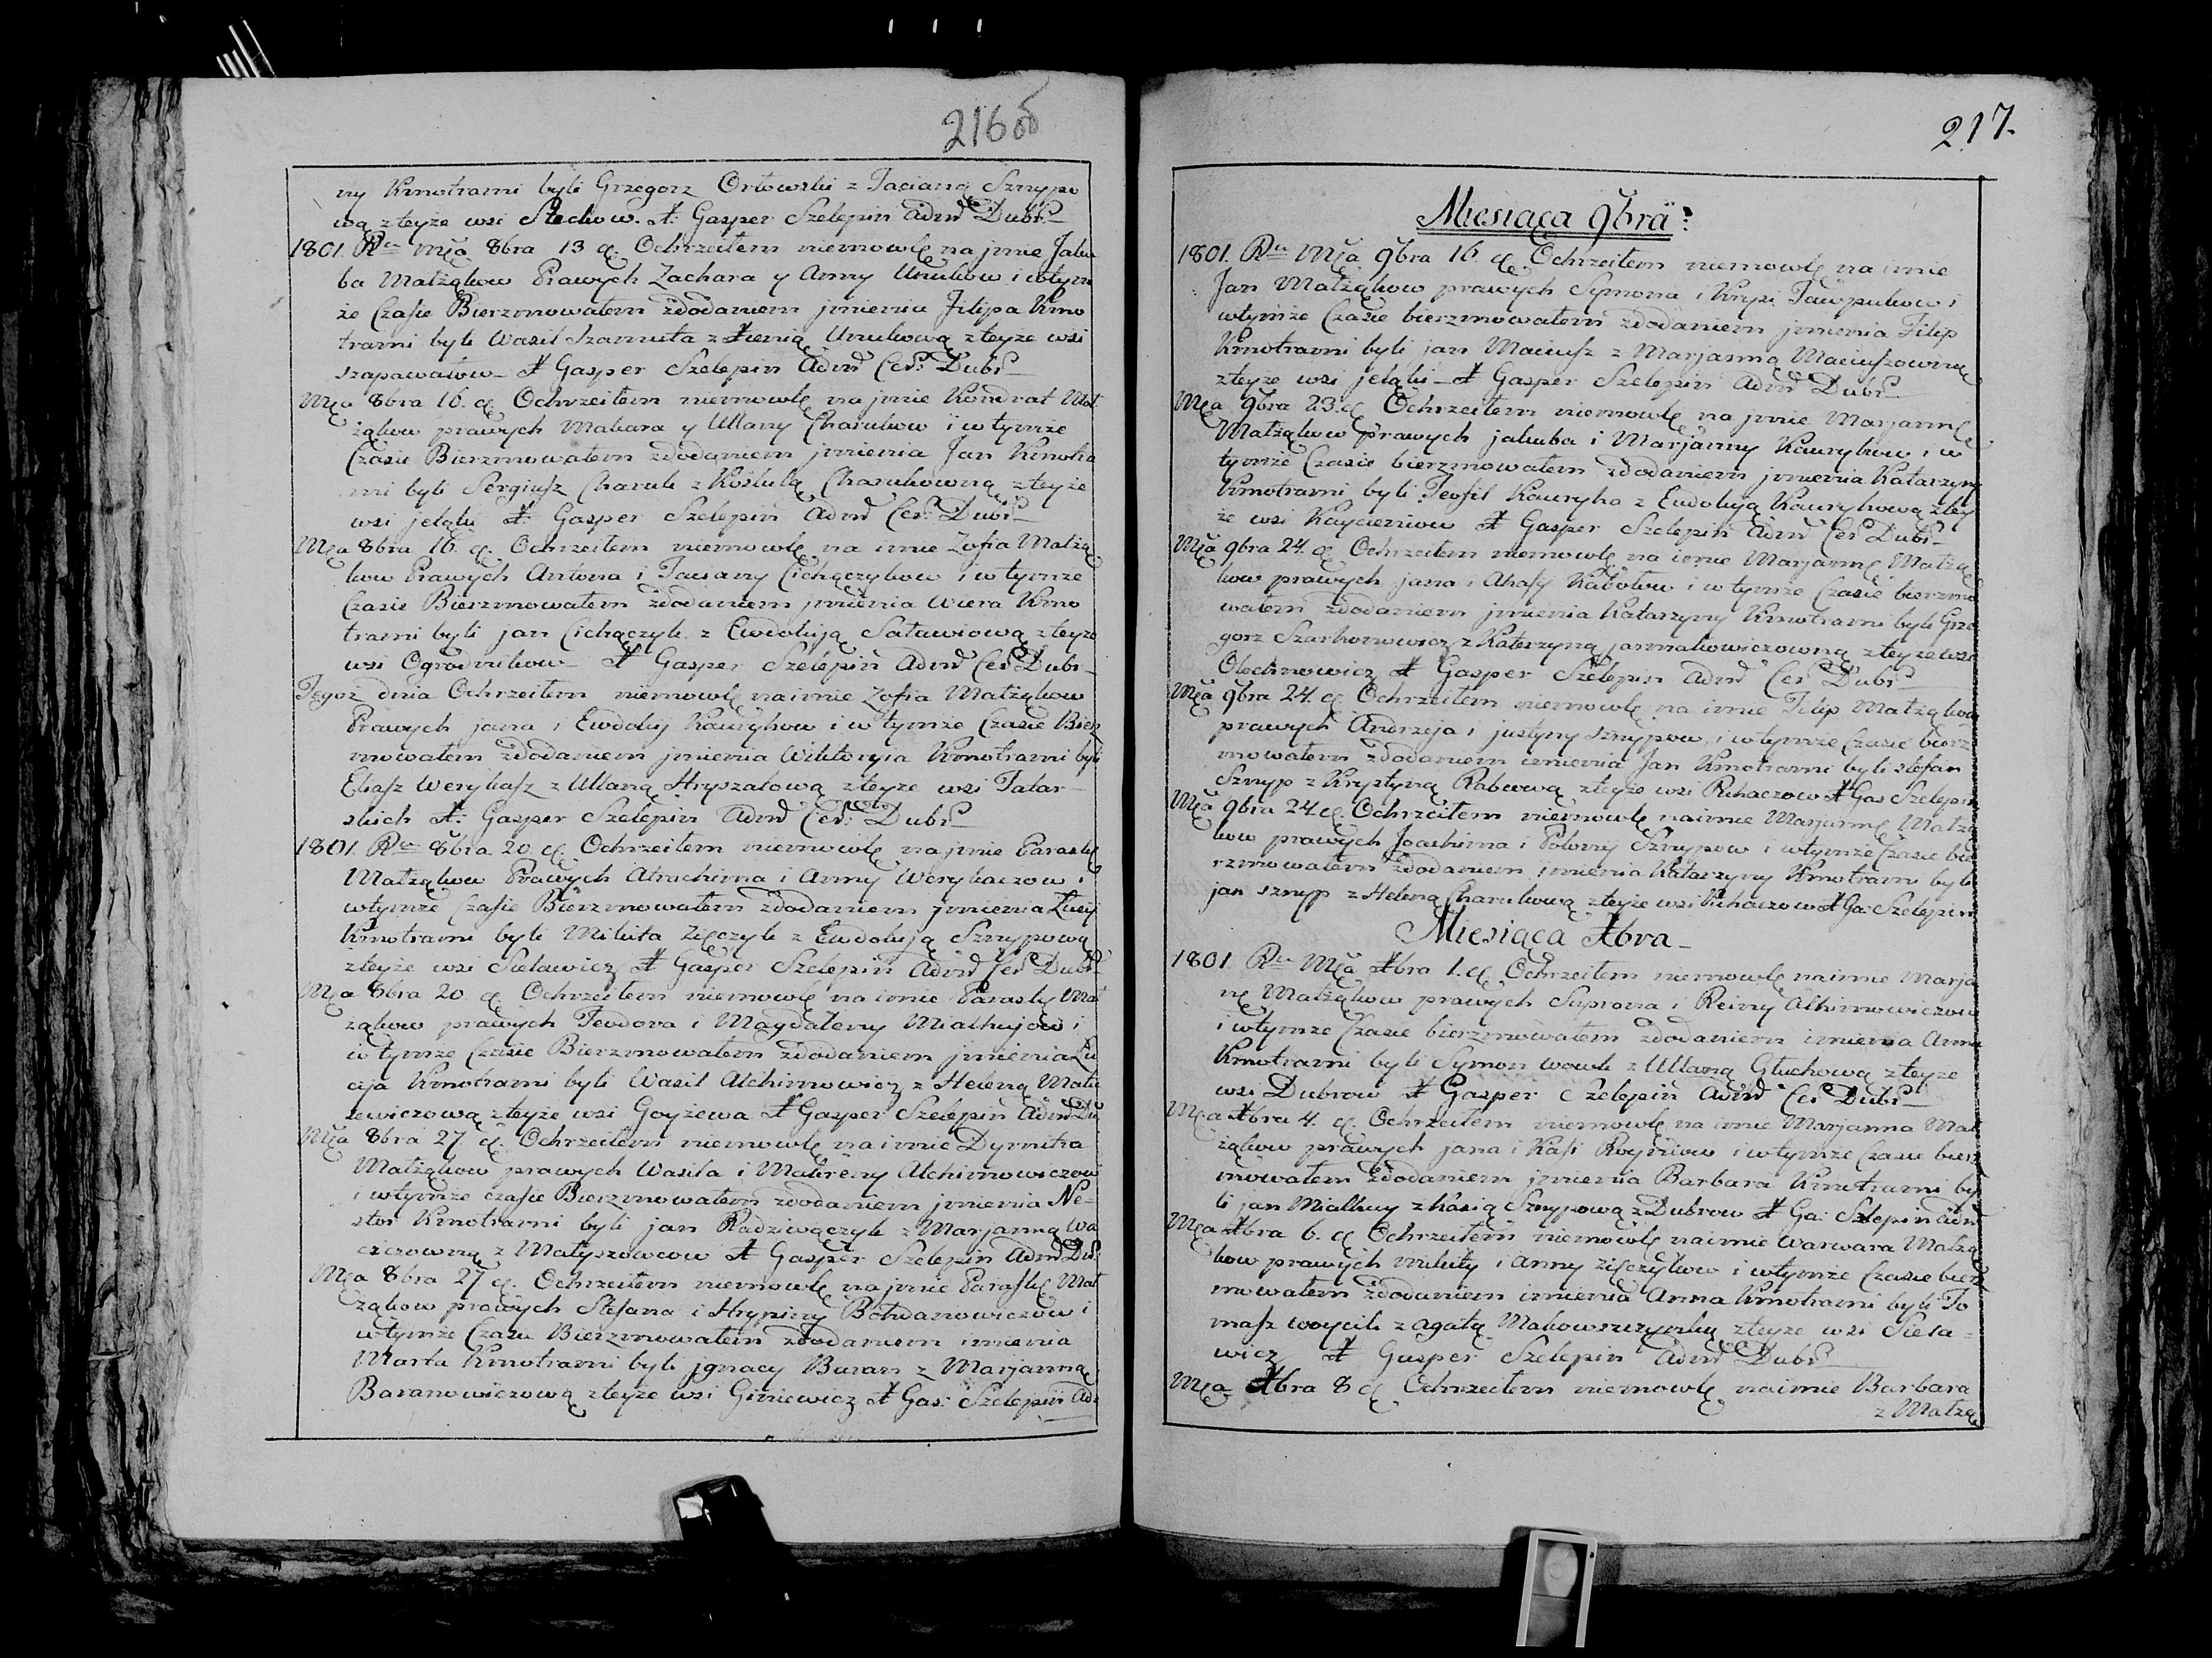 216 об
ny Kmotrami byli Grzegorz Orłowski z Tacianą Sznypo
wą zteyże wsi Stechow. X. Gasper Szelepin Admr Dubr
1801. Ru Mca 8bra 13 d. Ochrzciłem niemowlę na jmie Jaku
ba Małżąkow Prawych Zachara y Anny Unukow i wtym
że Czasie Bierzmowałem zdodaniem jmienia Filipa Kmo
trami byli Wasil Szamuta z Xienią Unukową zteyże wsi
szapawałow X Gasper Szelepin Admr Cer: Dubr
Mca 8bra 16. d. Ochrzciłem niemowlę na jmie Kondrat Mał
żąkow prawych Makara y Ullany Charukow i w tymże
Czasie Bierzmowałem zdodaniem jmienia Jan Kmotra
mi byli Sergiusz Charuk z Charukowną zteyże
wsi jeląki X. Gasper Szelepin Admr Cer: Dubr
Mca 8bra 16. d. Ochrzciłem niemowlę na imie Zofia Małżą
kow Prawych Antona i Tacianny Cichączykow i w tymże
Czasie Bierzmowałem zdodaniem jmienia Wiera Kmo
trami byli jan Cichączyk z Ewdokiją Saławiową zteyże
wsi Ogrodnikow X Gasper Szelepin Admr Cer Dubr
Tegoż dnia Ochrzciłem niemowlę naimie Zofia Małżąkow
Prawych jana i Ewdokij Kawrykow i w tymże Czasie Bierz
mowałem zdodaniem jmienia Wiktoryia Kmotrami byli
Eliasz Werykasz z Ullaną Hryszalową zteyże wsi Tatar
skich X: Gasper Szelepin Admr Cer: Dubr
1801. Ru 8bra 20. d. Ochrzciłem niemowlę na jmie Paraskę
Małżąkow Prawych Atrachima i Anny Werykaczow i
wtymże Czasie Bierzmowałem zdodaniem jmienia Łucij
Kmotrami byli Mikita Zięczyk z Ewdokiją Sznypową
zteyże wsi Sielawicz X Gasper Szelepin Admr Cer Dubr
Mca 8bra 20. d. Ochrzciłem niemowlę na imie Paraskę Mał
żąkow prawych Teodora i Magdaleny Miałkujow i
w tymże Czasie Bierzmowałem zdodaniem jmienia Łu
cija Kmotrami byli Wasil Alchimowicz z Heleną Matu
sewiczową zteyże wsi Goyżewa X Gasper Szelepin Admr Du
Mca 8bra 27 d. Ochrzciłem niemowlę na imie Dymitra
Małżąkow prawych Wasila i Matreny Alchimowiczow
i wtymże czasie Bierzmowałem zdodaniem jmienia Ne-
stor Kmotrami byli jan Radziwączyk z Marjanną Wa
z Matyszowcow X Gasper Szelepin Admr Dub
Mca 8bra 27 d. Ochrzciłem niemowlę na jmie Paraskę Mał
żąkow prawych Stefana i Hrypiny Bohdanowiczow i
wtymże Czasu Bierzmowałem zdodaniem imienia
Marta Kmotrami byli jgnacy Baran z Marjanną
Baranowiczową zteyże wsi Giniewicz X Gas: Szelepin Ad
217.
Miesiąca 9bra:
1801. Ru Mca 9bra 16 d. Ochrzciłem niemowlę na imie
Jan Małżąkow prawych Symona i Krysi Tawpukow i
wtymże Czasie bierzmowałem zdodaniem jmienia Filip
Kmotrami byli jan Maciusz z Marjanną Maciuszowną
zteyże wsi jeląki X Gasper Szelepin Admr Dubr
Mca 9bra 23. d. Ochrzciłem niemowlę na jmie Marjannę
Małżąkow prawych jakuba i Marjanny Kawrykow i w
tymże Czasie bierzmowałem zdodaniem jmienia Katarzyny
Kmotrami byli Teofil Kawryka z Ewdokiją Kawrykową ztey
że wsi Kaycieniow X Gasper Szelepin Admr Cer Dubr
Mca 9bra 24. d. Ochrzciłem niemowlę na imie Marjannę Małżą
kow prawych jana i Ahafij Kabotow i w tymże Czasie bierzmo
wałem zdodaniem jmienia Katarzyny Kmotrami byli Grze
gorz Szarhonowicz z Katarzyną jarmakowiczowną zteyże wsi
Olechnowicz X Gasper Szelepin Admr Cer Dubr
Mca 9bra 24. d. Ochrzciłem niemowlę na imie Filip Małżąkow
prawych Andrzeja i justyny sznypow, i wtymże Czasie bierz
mowałem zdodaniem imienia Jan Kmotrami byli stefan
Sznyp z Krystyną Rabcową zteyże wsi Puhaczow X Gas Szelepin
Mca 9bra 24 d. Ochrzciłem niemowlę naimie Marjannę Małżą
kow prawych Joachima i Połony Sznypow i wtymże Czasie bie
rzmowałem zdodaniem jmienia Katarzyny Kmotrami byli
jan sznyp z Heleną Charukową zteyże wsi Puhaczow X Ga: Szelepin
Miesiąca Xbra
1801 Ru Mca Xbra 1. d. Ochrzciłem niemowlę naimie Marja
nę Małżąkow prawych Suprona i Reiny Alhimowiczow
i wtymże Czasie bierzmowałem zdodaniem imienia Anna
Kmotrami byli Symon wowk z Ullaną Głuchową zteyże
wsi Dubrow X Gasper Szelepin Admr Cer Dubr
Mca Xbra 4. d. Ochrzciłem niemowlę na imie Marjanna Mał
żąkow prawych jana i Kasi Roynicow i wtymże Czasie bierz
mowałem zdodaniem jmienia Barbara Kmotrami by
li jan Miałkuy zhasią Sznypową z Dubrow X Ga: Szlepin adm
Mca Xbra 6. d Ochrzciłem niemowlę naimie Warwara Małżą
kow prawych mikity i anny zięczykow i wtymże Czasie bierz
mowałem zdodaniem imienia Anna Kmotrami byli To
masz woycik z agatą Makowszczynką zteyże wsi Siela-
wicz X Gasper Szelepin Admr Dubr
Mca Xbra 8 d. Ochrzciłem niemowlę naimie Barbara
z Małżą